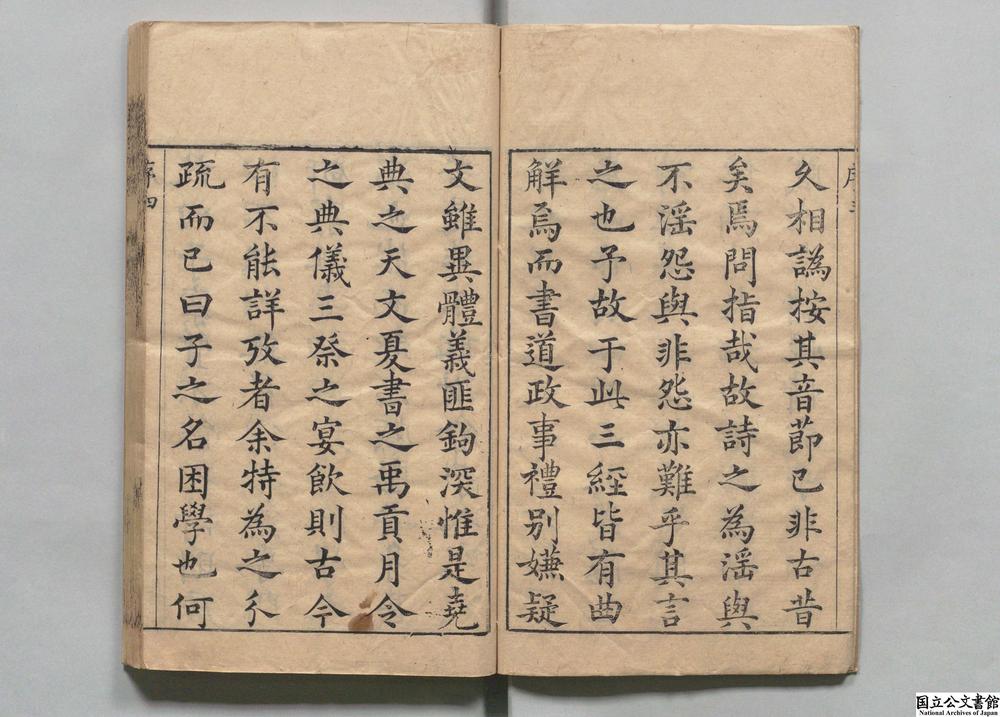 久相譌按其音節已非古昔
矣焉問指哉故詩之為淫與
不淫怨與非怨亦難乎其言
之也予故于此三經皆有曲
解焉而書道政事禮別嫌疑
文雖異體義匪鉤深惟是堯
典之天文夏書之禹貢月令
之典儀三祭之宴飲則古今
有不能詳攷者余特為之分
疏而已曰子之名困學也何
序四
国立公文書館
National Archives of Japan